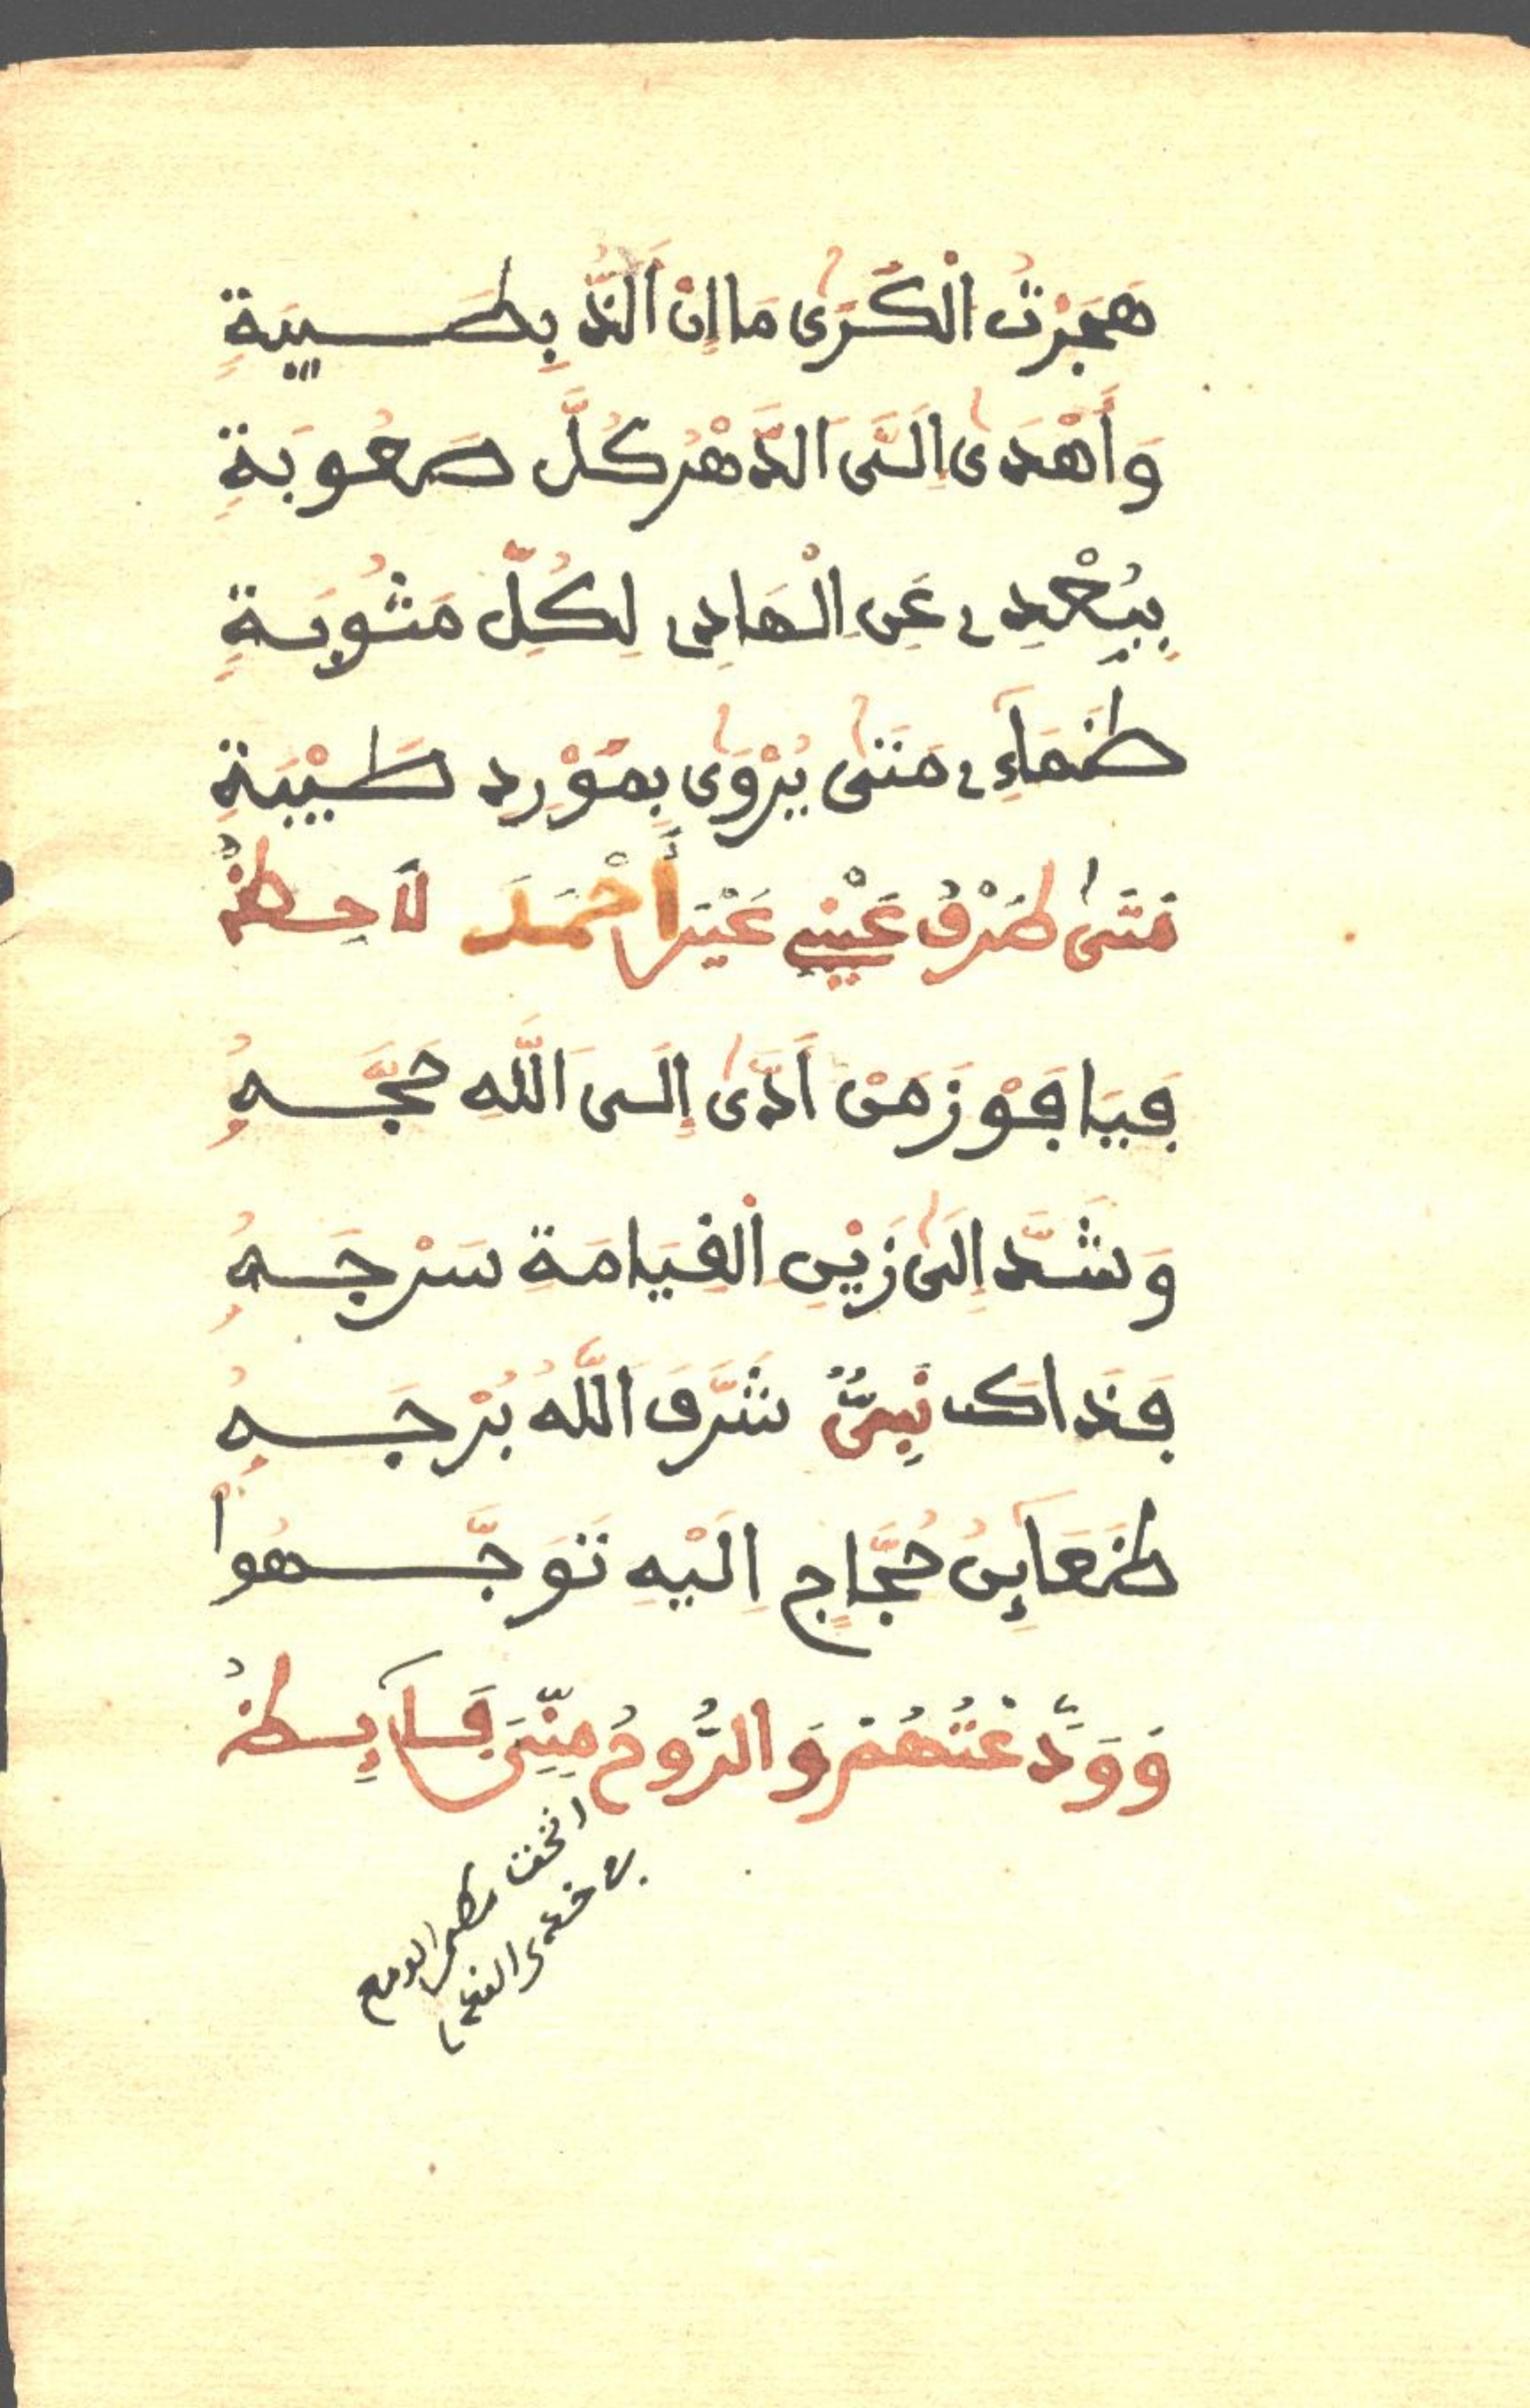 هَجَرْتُ الْكَرَىٰ مَا إِنْ أَلَذُّ بِطَيِّبَةٍ
وَأَهْدَىٰ إِلَيَّ الدَّهْرُ كُلَّ صَعُوبَةٍ
بِبُعْدِي عَنِ الْهَادِي لِكُلِّ مَثُوبَةٍ
ظَمَاءِي مَتَىٰ يُرْوَىٰ بِمَوْرِدِ طَيْبَةِ
مَتَىٰ طَرْفُ عَيْنِي عَيْنَ أَحْمَدَ لَاحِظُ
فَيَا فَوْزَ مَنْ أَدَّىٰ إِلَى اللَّهِ حَجَّهُ
وَشَدَّ إِلَىٰ زَيْنِ الْقِيَامَةِ سَرْجَهُ
فَذَاكَ نَبِيٌّ شَرَّفَ اللَّهُ بُرْجَهُ
ظَعَآئِنُ حُجَّاجٍ إِلَيْهِ تَوَجَّهُوا
وَوَدَّعْتُهُمْ وَالرُّوحُ مِنِّيَ فَآئِظُ